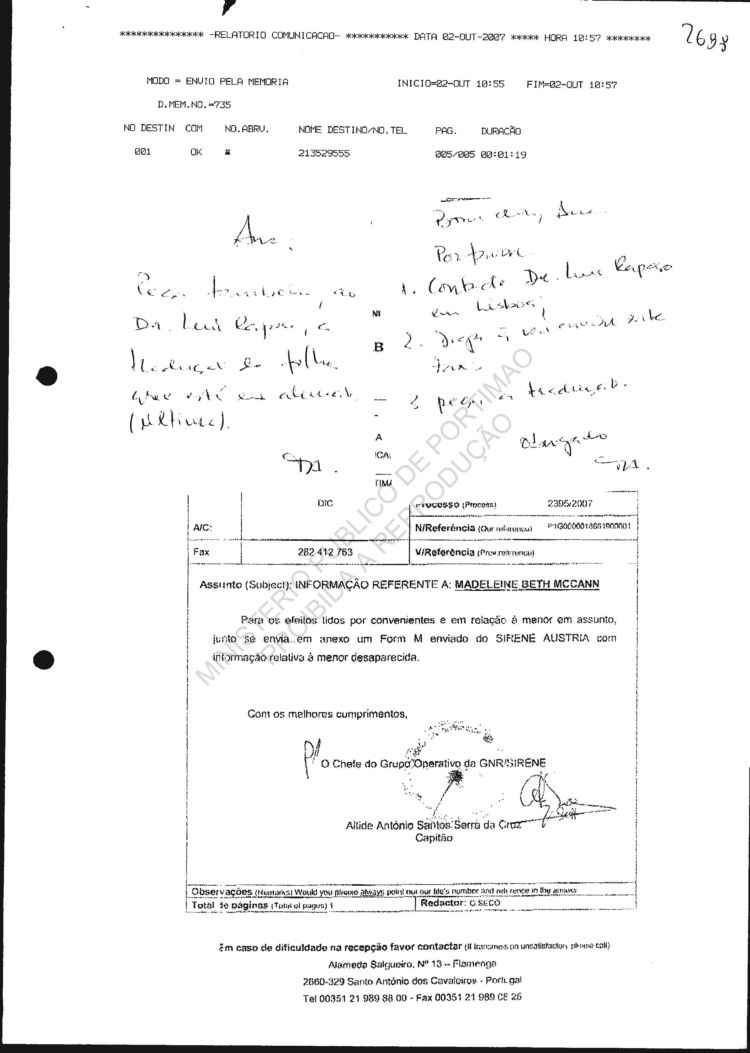 *************** -RELATORIO COMUNICACAO- *********** DATA 02-OUT-2007 ***** HORA 10:57 ********
MODO = ENVIO PELA MEMORIA INICIO=02-OUT 10:55 FIM=02-OUT 10:57
D.MEM.NO.=735
NO DESTIN COM NO.ABRV. NOME DESTINO/NO.TEL PAG. DURACÃO
001 OK 213529555 005/005 00:01:19
Peça também, ao
Dr. Luis Raposo, a
que está em
1. Contacte Dr. Luis Raposo
em Lisboa;
2.
fax.
3 peça a
Obrigado
NI
B
A
ICA
DIC
Processo (Process) 2395/2007
A/C: N/Referência (Our reference)
Fax 282 412 763 V/Referência (Prev.reference)
Assunto (Subject): INFORMAÇÃO REFERENTE A: MADELEINE BETH MCCANN
Para os efeitos tidos por convenientes e em relação à menor em assunto,
junto se envia em anexo um Form M enviado do SIRENE AUSTRIA com
informação relativa à menor desaparecida.
Com os melhores cumprimentos,
P/
O Chefe do Grupo Operativo da GNR/SIRENE
Altide António Santos Serra da Cruz
Capitão
Observações (Remarks) Would you please always point out our file's number and reference in the answer
Total de páginas (Total of pages) 1 Redactor: G.SECO
Em caso de dificuldade na recepção favor contactar (If transmission unsatisfactory please call)
Alameda Salgueiro, Nº 13 – Flamenga
2660-329 Santo António dos Cavaleiros - Portugal
Tel 00351 21 989 88 00 - Fax 00351 21 989
MINISTERIO PUBLICO DE PORTIMAO
PROIBIDA A REPRODUÇÃO